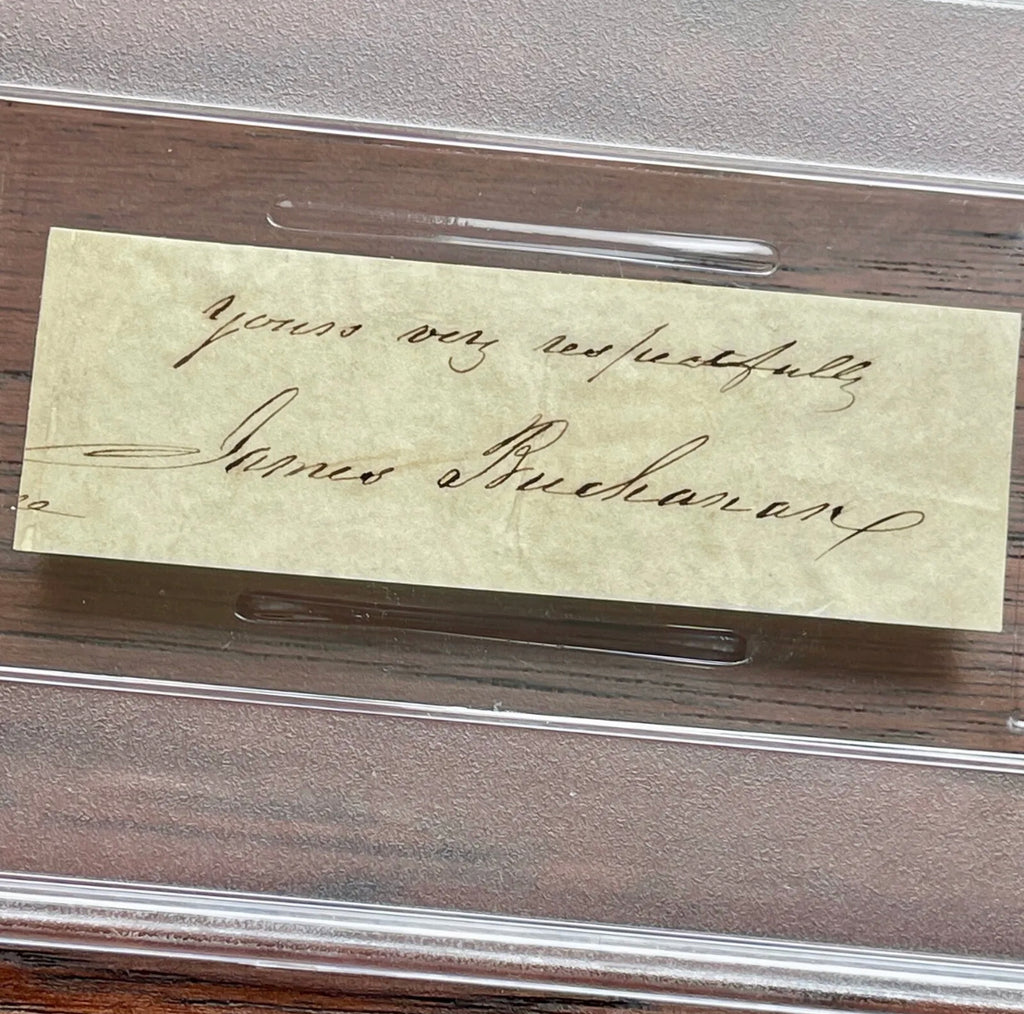 yours very respectfully
James Buchanan